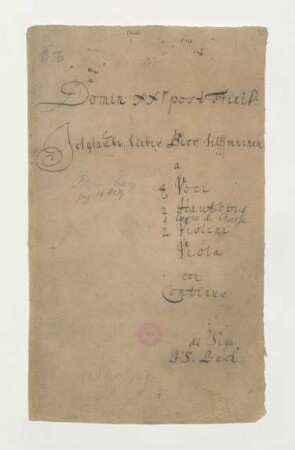 Domin XXI post Trinit.
Ich glaube, lieber Herr, hilff meinem
a
4 Voci
2 Hautbois
1 Corne du chasse
2 Violini
Viola
con
Continuo
di Sigr
J. S. Bach